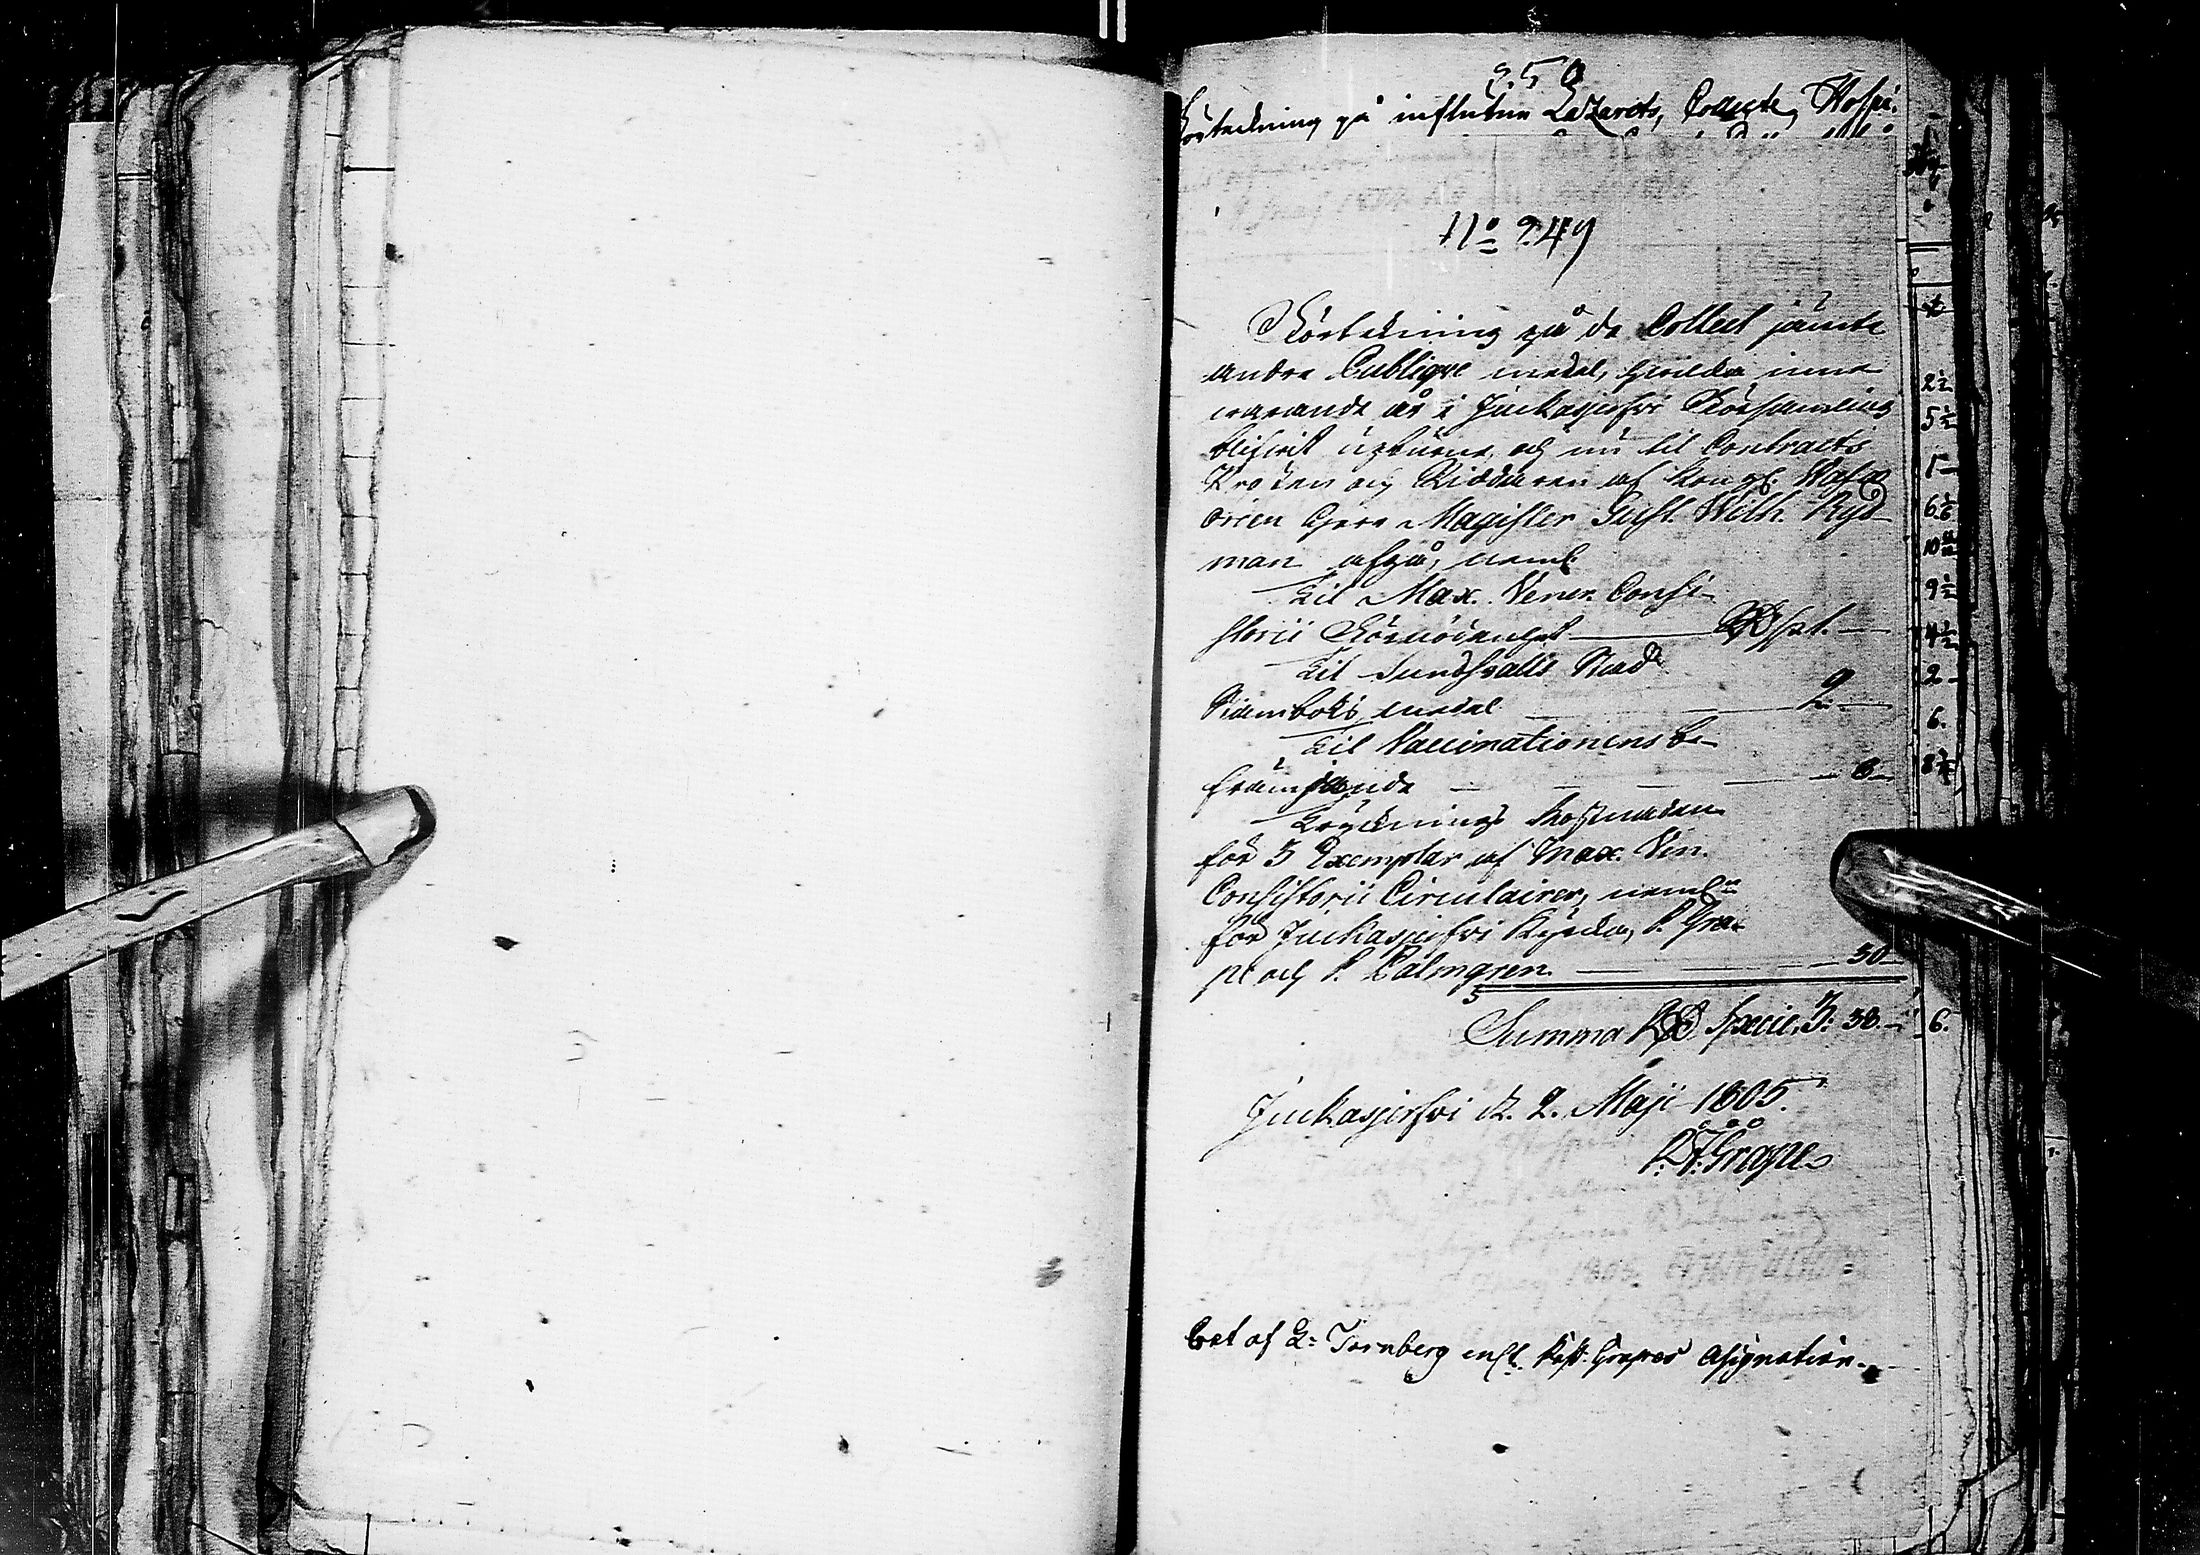 250
Förteckning på influtne Lazarets, Collecte, Hospi:
No 249
Förtekning på de Collect jämte
andre Publique medel, hvilka inne
varande år i Juckasjerfvi Församling
blifvit upburne, och nu til Contracts
Prosten och Riddaren af Kongl. Wasa
Orden Herr Magister Gust. Wilh. Ryd
man afgå, neml.
Til Max. Vener. Consi-
storii Förnödenhet — RD sp 1. —
Til Sundsvalls Stads
Stamboks medel — 2 —
Til Vaccinationens be-
främjande — 6 —
Tryknings Kostnaden
för 5 Exemplar af Max. Ven.
Consistorii Circulairer, neml.
för Juckasjerfvi Kyrcka, P. Gra-
pe och P. Palmgren. — 30 —
Summa RD Specie, 3: 38. —
Juckasjerfvi d. 2. Maji 1805.
Grape
Bet af L: Tornberg enl. Past. Grapes Asignation.
2½
5½
6.
9½
4½
2
6.
6.